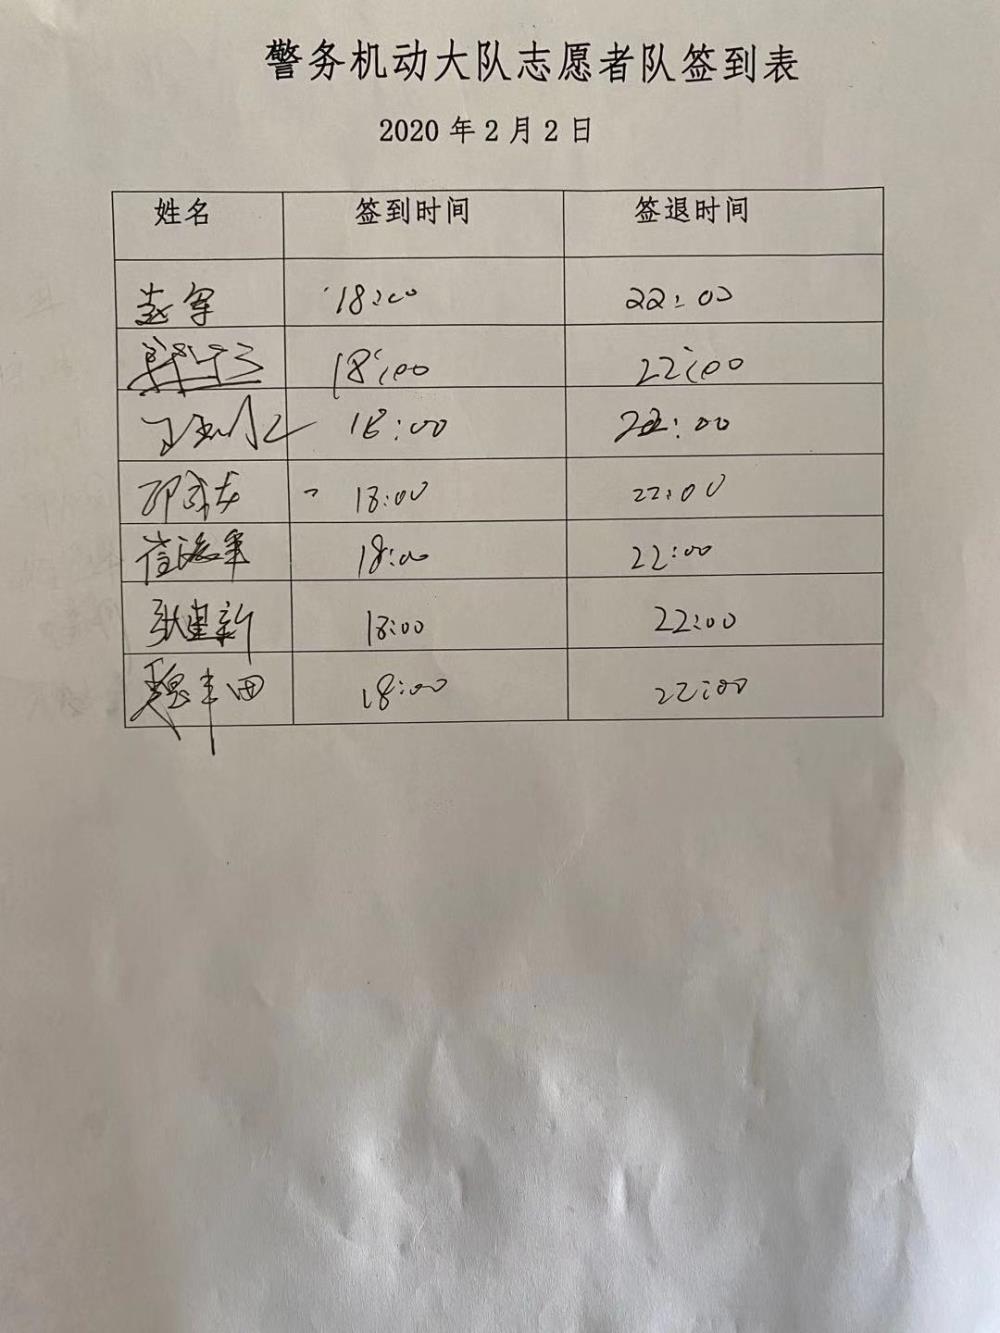 警务机动大队志愿者队签到表
2020年2月2日
姓名 签到时间 签退时间
赵军 18:00 22:00
18:00 22:00
18:00 22:00
18:00 22:00
崔海军 18:00 22:00
张建新 18:00 22:00
魏丰田 18:00 22:00